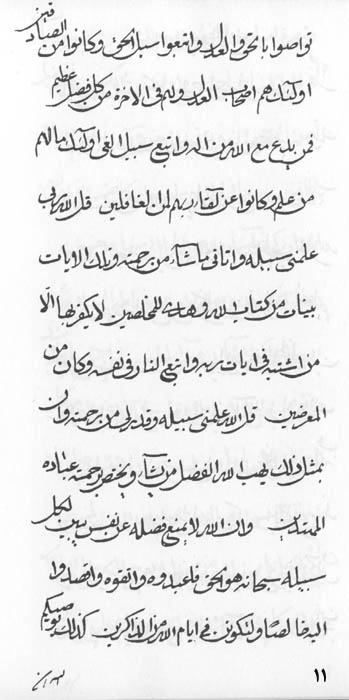 تواصوا بالحق والعدل واتبعوا سبل الحق وكانوا من الصادقين
اولئك هم اصحاب العدل ولهم فى الاخرة من كل فضل عظيم
فمن يدع مع الله من اله واتبع سبيل الغى اولئك ما لهم
من علم وكانوا عن لقاء ربهم لمن الغافلين قل الله ربى
علمنى سبيله واتانى ما شآء من رحمته وتلك الايات
بينات من كتاب الله وهدى للمخلصين لا يكفر بها الّا
من اشتبه فى ايات ربه واتبع النار فى نفسه وكان من
المعرضين قل الله علمنى سبيله وقدر لى من رحمته وان
بمثل ذلك يهب الله الفضل من يشآء ويختص برحمته عباده
الممتدين وان الله لا يمنع فضله عن نفس يبين لكل
سبيله سبحانه هو الحق فاعبدوه واتقوه واقصدوا
اليه خالصًا ولتكونن فى ايام الله من الذاكرين كذلك يوصيكم
١١